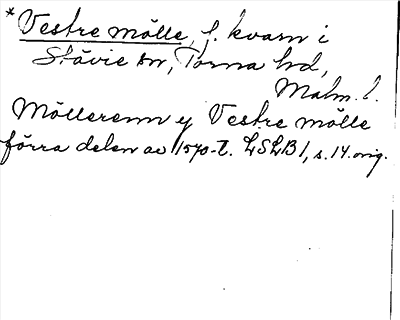 * Vestre mölle, f. kvarn i
Stävie sn, Torna hd,
Malm. l.
Möllerenn y Vestre mölle
förra delen av 1570-t. LSLB 1, s. 14. orig.